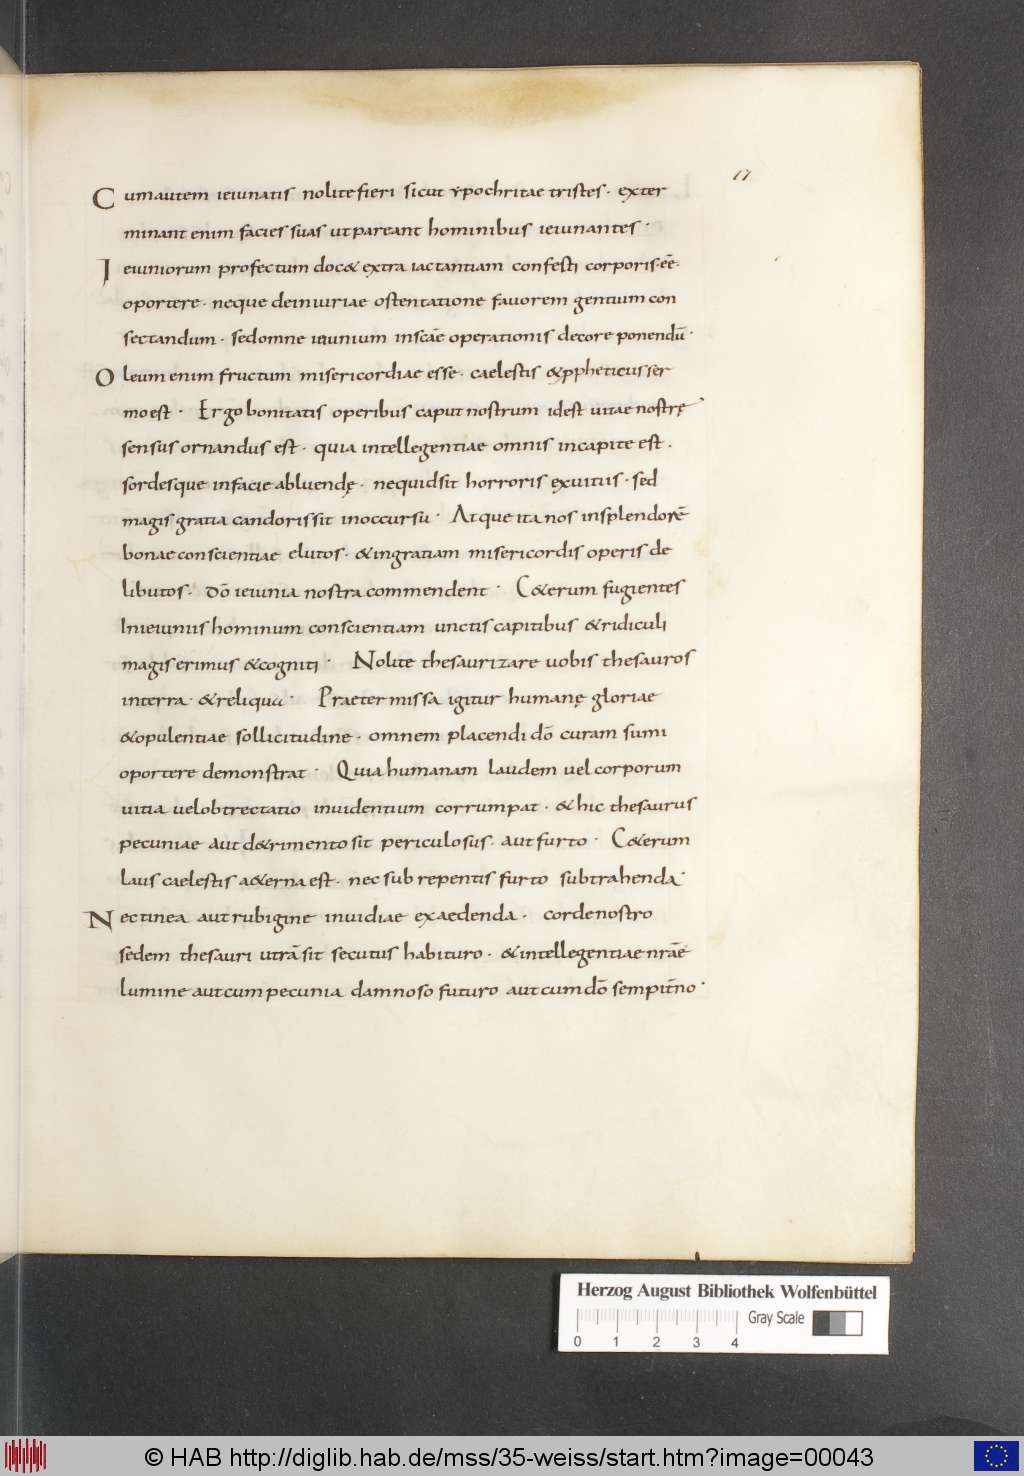 17
Cum autem ieiunatis nolite fieri sicut ypochritae tristes · exter
minant enim facies suas ut pareant hominibus ieiunantes ·
Ieiuniorum profectum doc& extra iactantiam confesti corporis · eē ·
oportere · neque deiniuriae ostentatione fauorem gentium con
sectandum · sed omne ieiunium in scāe operationis decore ponendū ·
Oleum enim fructum misericordiae esse · caelestis & ppheticus ser
mo est · Ergo bonitatis operibus caput nostrum id est uitae nostrę
sensus ornandus est · quia intellegentiae omnis in capite est ·
sordesque in facie abluendę · ne quid sit horroris ex uitiis · sed
magis gratia candoris sit in occursu · Atque ita nos in splendorē
bonae conscientiae elutos · & in gratiam misericordis operis de
libutos · dō ieiunia nostra commendent · C&erum fugientes
In ieiuniis hominum conscientiam unctis capitibus & ridiculi
magis erimus & cogniti · Nolite thesaurizare uobis thesauros
in terra · & reliqua · Praetermissa igitur humanę gloriae
& opulentiae sollicitudine · omnem placendi dō curam sumi
oportere demonstrat · Quia humanam laudem uel corporum
uitia uel obtrectatio inuidentium corrumpat · & hic thesaurus
pecuniae aut d&rimento sit periculosus · aut furto · C&erum
Laus caelestis a&erna est · nec subrepentis furto subtrahenda ·
Nec tinea aut rubigine inuidiae exaedenda · corde nostro
sedem thesauri utrā sit secutus habituro · & intellegentiae nrāe
lumine aut cum pecunia damnoso futuro aut cum dō sempit̄no ·
Herzog August Bibliothek Wolfenbüttel
Gray Scale
0 1 2 3 4
© HAB http://diglib.hab.de/mss/35-weiss/start.htm?image=00043